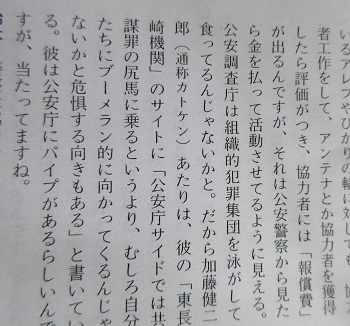 いるアレフやひかりの輪に対しても、協力
者工作をして、アンテナとか協力者を獲得
したら評価がつき、協力者には「報償費」
が出るんですが、それは公安警察から見た
ら金を払って活動させてるように見える。
公安調査庁は組織的犯罪集団を泳がして
食ってるんじゃないかと。だから加藤健二
郎（通称カトケン）あたりは、彼の「東長
崎機関」のサイトに「公安庁サイドでは共
謀罪の尻馬に乗るというより、むしろ自分
たちにブーメラン的に向かってくるんじゃ
ないかと危惧する向きもある」と書いてい
る。彼は公安庁にパイプがあるらしいんで
すが、当たってますね。